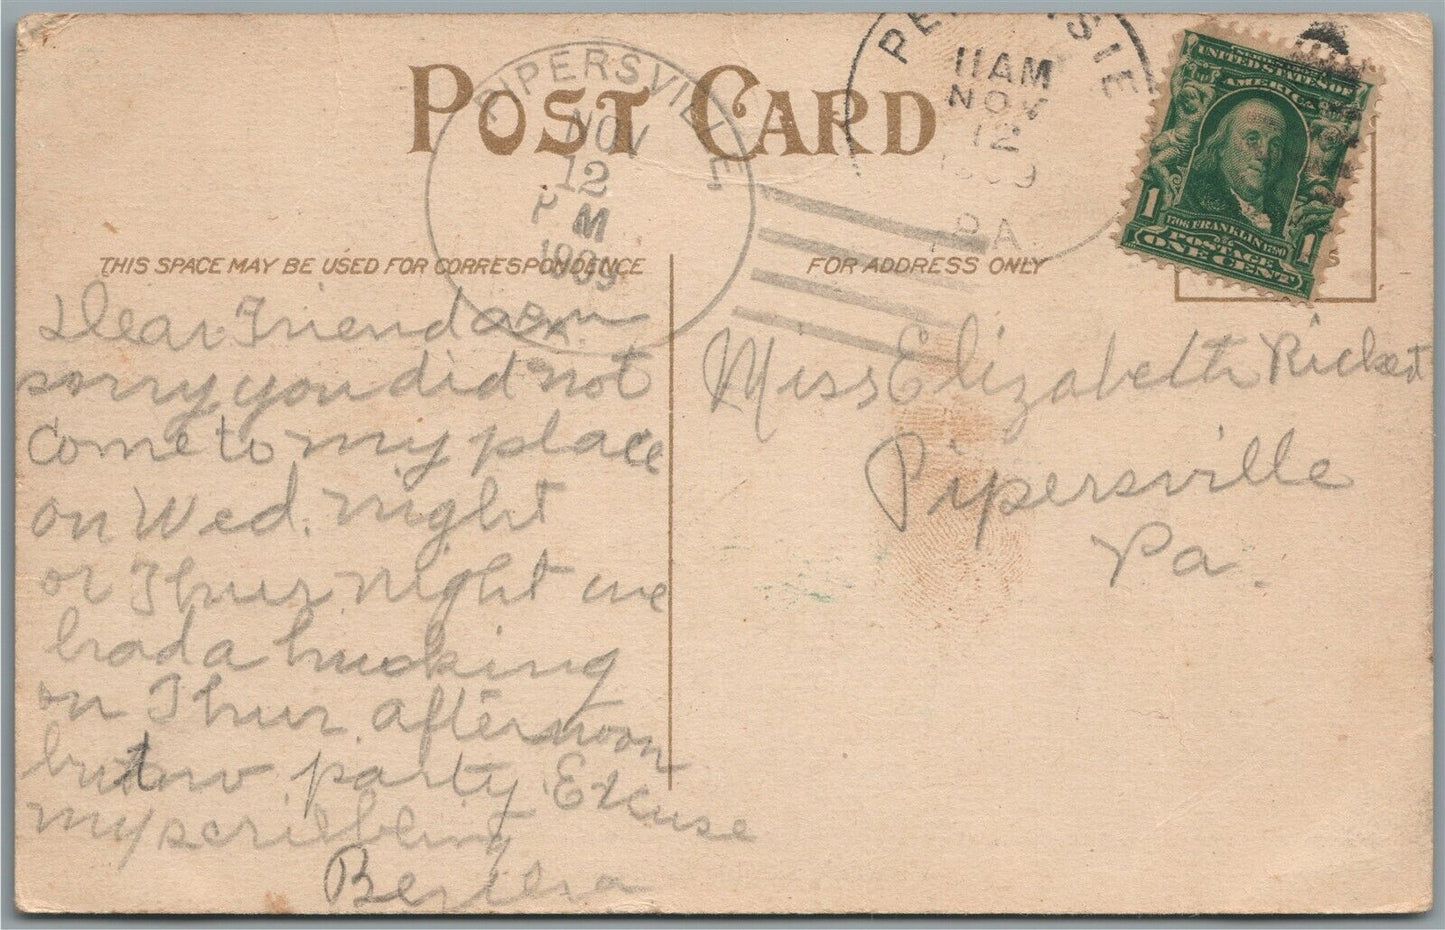 POST CARD
PIPERSVILLE
NOV
12
P M
1909
PA.
11 AM
NOV
12
1909
PA.
UNITED STATES OF
AMERICA
1706 FRANKLIN 1790
1 POSTAGE 1
ONE CENT
THIS SPACE MAY BE USED FOR CORRESPONDENCE
FOR ADDRESS ONLY
Dear Friend am
sorry you did not
come to my place
on Wed. night
or Thur night we
had a husking
on Thur. afternoon
but no party. Excuse
my scribbling
Miss Elizabeth Rickert
Pipersville
Pa.